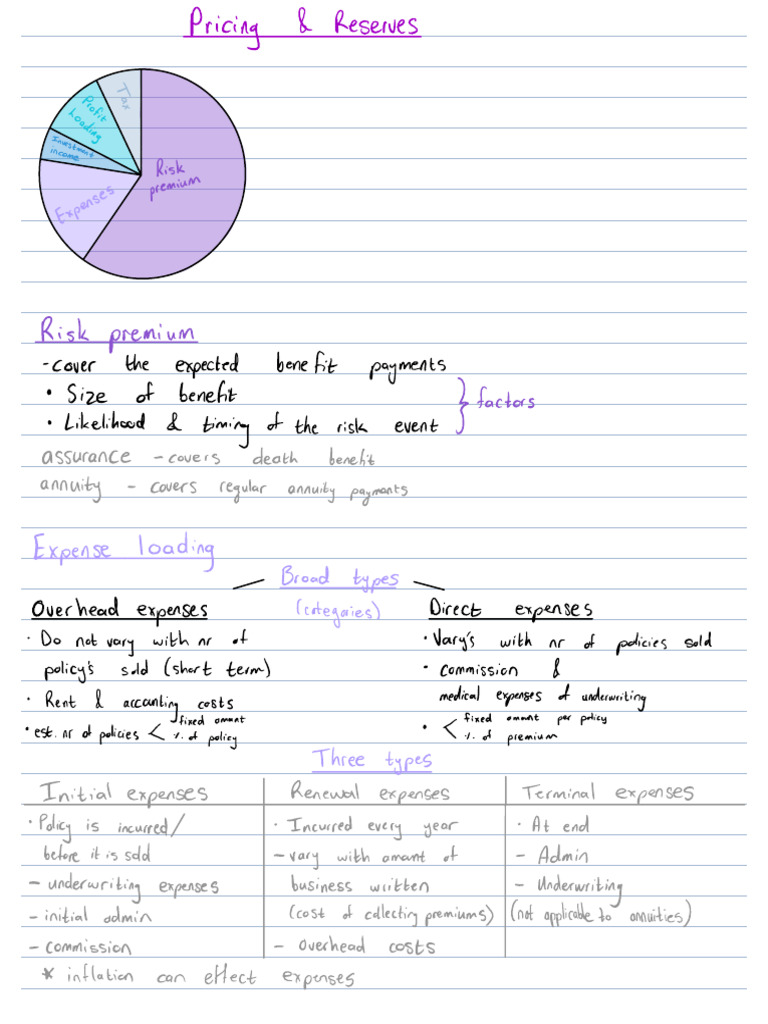 Pricing & Reserves
Tax
Profit
loading
Investment
income
Risk
premium
Expenses
Risk premium
- cover the expected benefit payments
• Size of benefit
• Likelihood & timing of the risk event
} factors
assurance - covers death benefit
annuity - covers regular annuity payments
Expense loading
Broad types
(categories)
Overhead expenses
• Do not vary with nr of
policy's sold (short term)
• Rent & accounting costs
• est. nr of policies < fixed amant
% of policy
Direct expenses
• Vary's with nr of policies sold
• commission &
medical expenses of underwriting
• < fixed amant per policy
% of premium
Three types
Initial expenses
• Policy is incurred/
before it is sold
- underwriting expenses
- initial admin
- commission
Renewal expenses
• Incurred every year
- vary with amant of
business written
(cost of collecting premiums)
- overhead costs
Terminal expenses
• At end
- Admin
- Underwriting
(not applicable to annuities)
* inflation can effect expenses